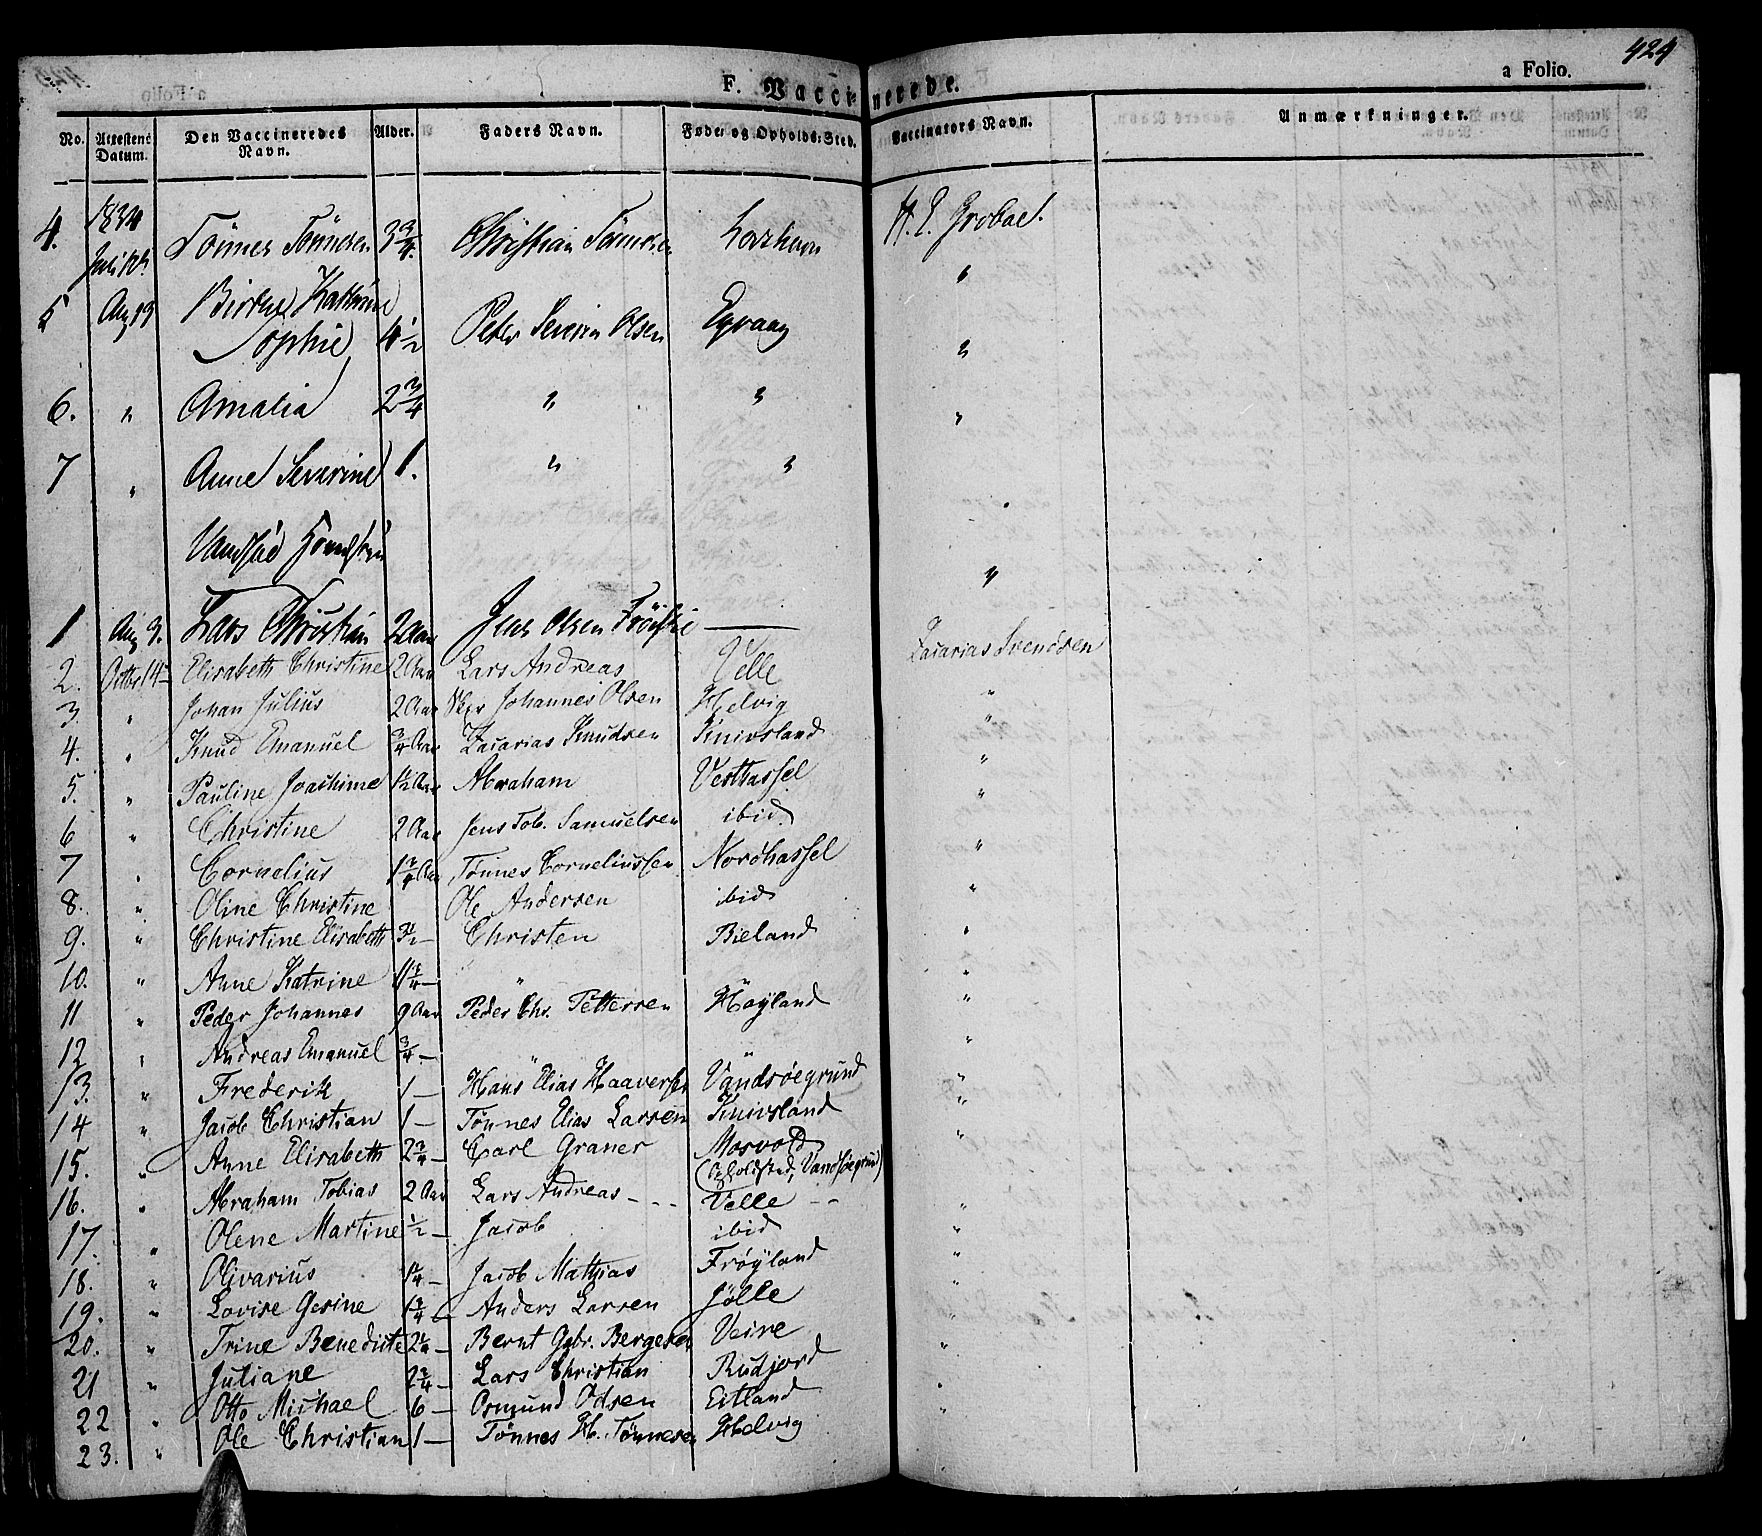 424
F. Vaccinerede.
a Folio.
No. Attestens Datum. Den Vaccineredes Navn. Alder. Faders Navn. Føde- og Opholds-Sted. Vaccinators Navn. Anmærkninger.
1834
4. Tönnes Tönnesen 3 3/4. Christian Tönnesen H. E. Grobae.
5 Aug 19 Sophie 4 1/2 Peter Severin Olsen Egvaag "
6. " Amalia 2 3/4 " " "
7 " Anne Severine 1. " "
1 Aug 9. Lars Christian 2 Aar Jens Olsen —— Zacarias Svendsen
2. Octbr 14 - Elisabeth Christine 2 Aar Lars Andreas Velle
3 " Johan Julius 2 Aar Johannes Olsen Helvig "
4. " Knud Emanuel 3/4 Aar Zacarias Knudsen Knivsland "
5. " Pauline Joachime 1 1/2 Aar Abraham Vesthassel "
6 " Christine 2 Aar Jens Tob. Samuelsen ibid. "
7 " Cornelius 1 3/4 Aar Tønnes Corneliussen Nordhassel "
8. " Oline Christine Ole Andersen ibid "
9. " Christine Elisabeth 3 1/2 — Christen Bieland "
10. " Anne Katrine 1 3/4 — " "
11 " Peder Johannes 9 Aar Peder Chr. Pettersen Høyland "
12 " Andreas Emanuel 3/4 — " " "
13. " Frederik 1 — Hans Elias Haaversen Vandsøegrund "
14 " Jacob Christian 1 — Tønnes Elias Larsen Knivsland "
15. " Anne Elisabeth 2 3/4 — Carl Graner Mosvold "
(Opholdsted, Vandsøegrund)
16. " Abraham Tobias 2 Aar Lars Andreas - - - Velle - - "
17. " Olene Martine 1/2 — Jacob ibid "
18. " Olivarius 1 1/4 — Jacob Mathias Frøyland "
19. " Lovise Gesine 1 3/4 Anders Larsen Jölle "
20. " Trine Benedicte 2 1/4 — Bernt Gbr. Bergesen Veire "
21 " Juliane 2 3/4 — Lars Christian Rudjord "
22 " Otto Michael 6 — Osmund Odsen Eitland "
23. " Ole Christian 1 — Tønnes H. Tønnesen Helvig